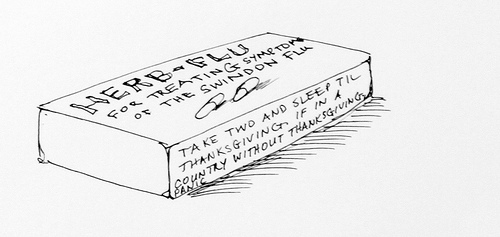 HERB-A-FLU
FOR TREATING SYMPTOM
OF THE SWINDON FLU
TAKE TWO AND SLEEP TIL
THANKSGIVING. IF IN A
COUNTRY WITHOUT THANKSGIVING,
PANIC